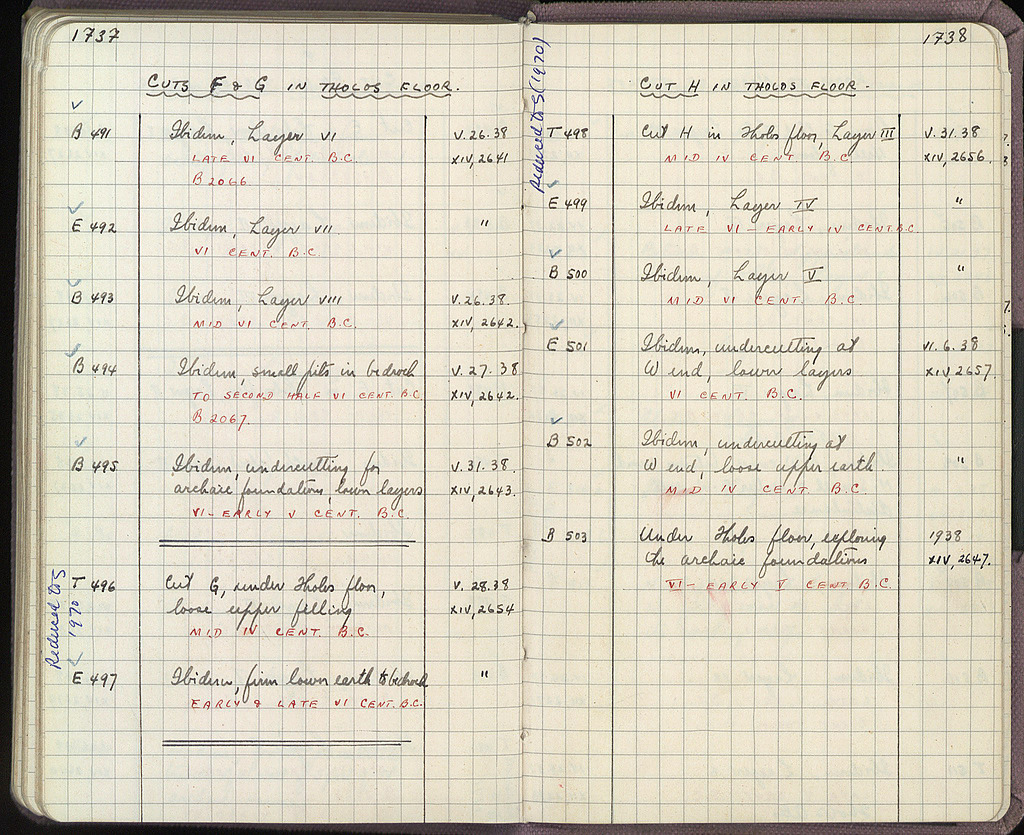 1737
CUTS F & G IN THOLOS FLOOR.
B 491 Ibidem, Layer VI V.26.38
LATE VI CENT. B.C. XIV, 2641
B 2066
E 492 Ibidem, Layer VII "
VI CENT. B.C.
B 493 Ibidem, Layer VIII V.26.38.
MID VI CENT. B.C. XIV, 2642.
B 494 Ibidem, small pits in bedrock V.27.38
TO SECOND HALF VI CENT. B.C. XIV, 2642.
B 2067.
B 495 Ibidem, undercutting for V.31.38.
archaic foundations, lower layers XIV, 2643.
VI - EARLY V CENT. B.C.
Reduced to S
1970
T 496 Cut G, under Tholos floor, V.28.38
loose upper filling XIV, 2654
MID IV CENT. B.C.
E 497 Ibidem, firm lower earth to bedrock "
EARLY & LATE VI CENT. B.C.
1738
CUT H IN THOLOS FLOOR.
Reduced to S (1970)
T 498 Cut H in Tholos floor, Layer III V.31.38
MID IV CENT. B.C. XIV, 2656.
E 499 Ibidem, Layer IV "
LATE VI - EARLY IV CENT. B.C.
B 500 Ibidem, Layer V "
MID VI CENT. B.C.
E 501 Ibidem, undercutting at VI.6.38
W end, lower layers XIV, 2657.
VI CENT. B.C.
B 502 Ibidem, undercutting at
W end, loose upper earth. "
MID IV CENT. B.C.
B 503 Under Tholos floor, exploring 1938
the archaic foundations XIV, 2647.
VI - EARLY V CENT. B.C.